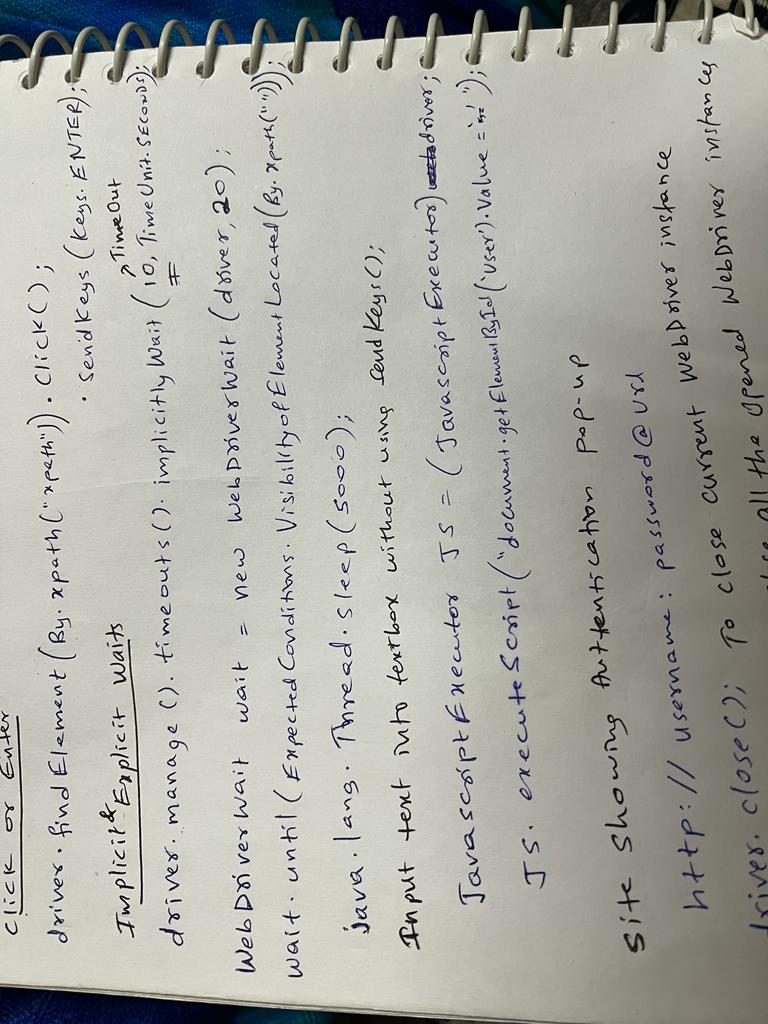 Click or Enter
driver.findElement(By.xpath("xpath")).Click();
.SendKeys(Keys.ENTER);
Implicit & Explicit Waits
TimeOut
driver.manage().timeouts().implicitlyWait(10, TimeUnit.SECONDS);
WebDriverWait wait = new WebDriverWait(driver, 20);
wait.until(ExpectedConditions.VisibilityofElementLocated(By.xpath("")));
java.lang.Thread.sleep(5000);
Input text into textbox without using SendKeys();
JavascriptExecutor JS = (JavascriptExecutor) driver;
JS.executeScript("document.getElementById('User').Value = 'xyz'");
Site Showing Authentication pop-up
http://username:password@url
driver.close(); To close current WebDriver instance
all the opened WebDriver instances